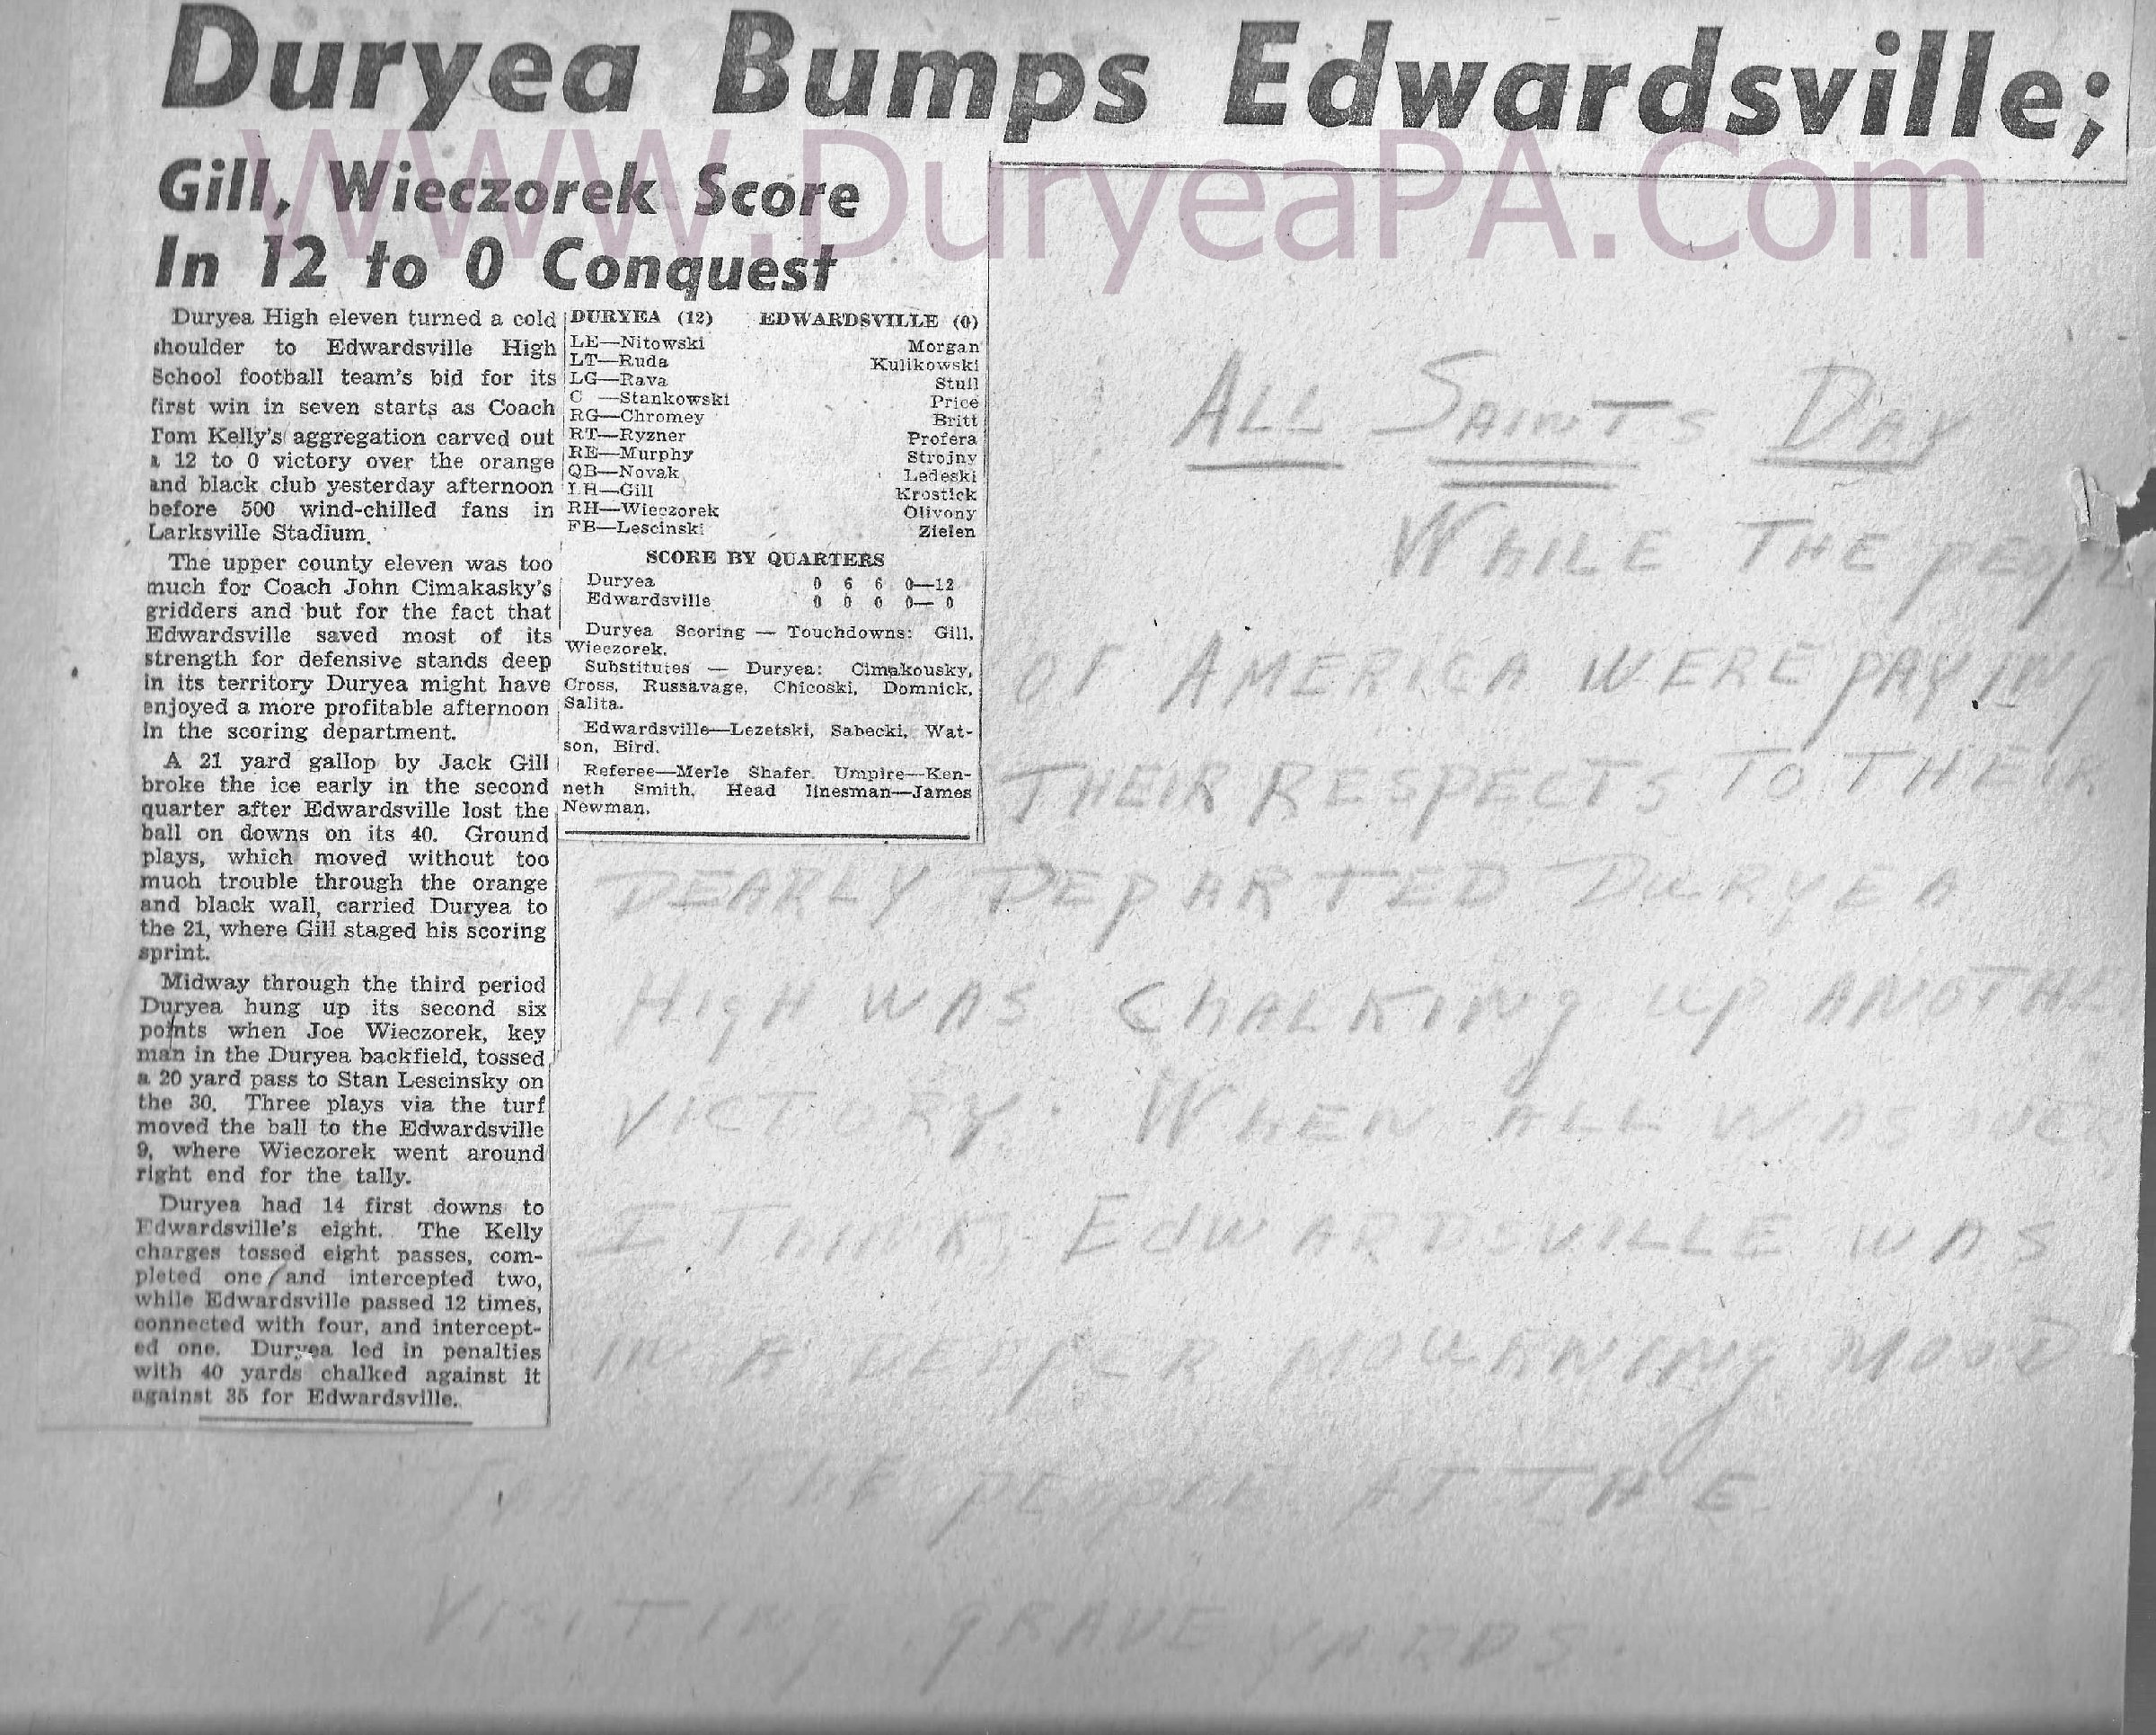 Duryea Bumps Edwardsville;
WWW.DuryeaPA.Com
Gill, Wieczorek Score
In 12 to 0 Conquest
Duryea High eleven turned a cold
shoulder to Edwardsville High
School football team's bid for its
first win in seven starts as Coach
Tom Kelly's aggregation carved out
a 12 to 0 victory over the orange
and black club yesterday afternoon
before 500 wind-chilled fans in
Larksville Stadium.
The upper county eleven was too
much for Coach John Cimakasky's
gridders and but for the fact that
Edwardsville saved most of its
strength for defensive stands deep
in its territory Duryea might have
enjoyed a more profitable afternoon
in the scoring department.
A 21 yard gallop by Jack Gill
broke the ice early in the second
quarter after Edwardsville lost the
ball on downs on its 40. Ground
plays, which moved without too
much trouble through the orange
and black wall, carried Duryea to
the 21, where Gill staged his scoring
sprint.
Midway through the third period
Duryea hung up its second six
points when Joe Wieczorek, key
man in the Duryea backfield, tossed
a 20 yard pass to Stan Lescinsky on
the 30. Three plays via the turf
moved the ball to the Edwardsville
9, where Wieczorek went around
right end for the tally.
Duryea had 14 first downs to
Edwardsville's eight. The Kelly
charges tossed eight passes, com-
pleted one and intercepted two,
while Edwardsville passed 12 times,
connected with four, and intercept-
ed one. Duryea led in penalties
with 40 yards chalked against it
against 35 for Edwardsville.
DURYEA (12) EDWARDSVILLE (0)
LE—Nitowski Morgan
LT—Ruda Kulikowski
LG—Rava Stull
C —Stankowski Price
RG—Chromey Britt
RT—Ryzner Profera
RE—Murphy Strojny
QB—Novak Ledeski
LH—Gill Krostick
RH—Wieczorek Olivony
FB—Lescinski Zielen
SCORE BY QUARTERS
Duryea 0 6 6 0—12
Edwardsville 0 0 0 0— 0
Duryea Scoring — Touchdowns: Gill,
Wieczorek.
Substitutes — Duryea: Cimakousky,
Cross, Russavage, Chicoski, Domnick,
Salita.
Edwardsville—Lezetski, Sabecki, Wat-
son, Bird.
Referee—Merle Shafer. Umpire—Ken-
neth Smith, Head linesman—James
Newman.
ALL SAINTS DAY
WHILE THE
OF AMERICA WERE PAYING
THEIR RESPECTS TO THEIR
DEARLY DEPARTED DURYEA
HIGH WAS CHALKING UP
VICTORY. WHEN ALL WAS
I THINK EDWARDSVILLE WAS
IN A DEEPER MOURNING MOOD
THAN THE PEOPLE AT THE
VISITING GRAVE YARDS.